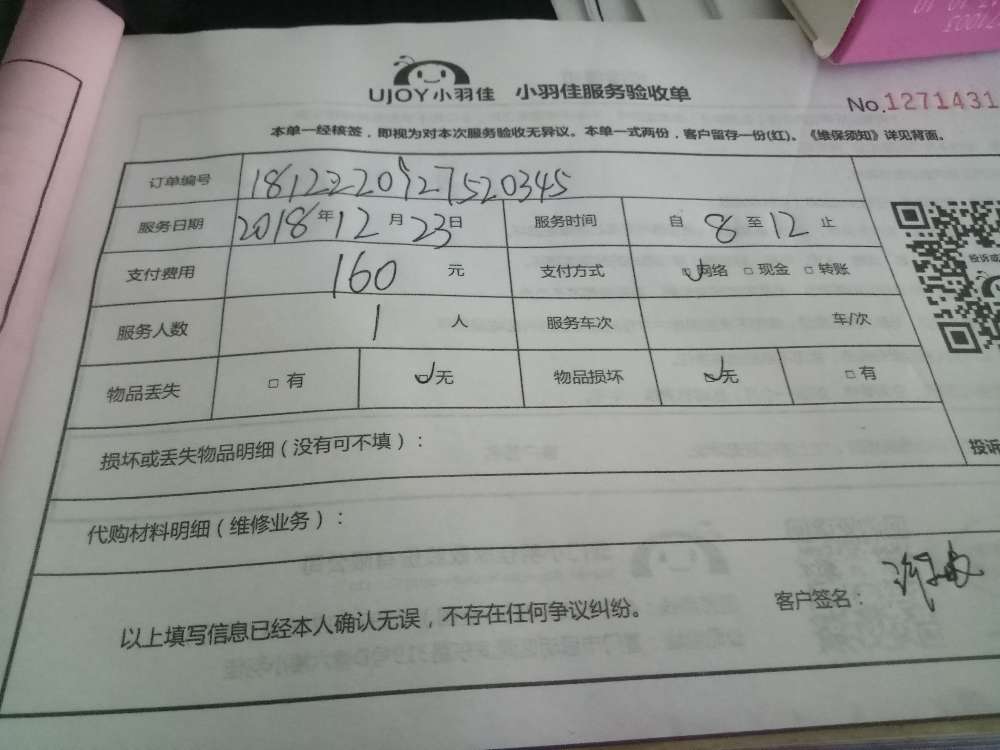 UJOY小羽佳 小羽佳服务验收单
No.1271431
本单一经核签，即视为对本次服务验收无异议。本单一式两份，客户留存一份(红)。《维保须知》详见背面。
订单编号 1812220927520345
服务日期 2018年12月23日 服务时间 自 8 至 12 止
支付费用 160 元 支付方式 网络 现金 转账
服务人数 1 人 服务车次 车/次
物品丢失 有 无 物品损坏 无 有
损坏或丢失物品明细（没有可不填）：
投诉
代购材料明细（维修业务）：
以上填写信息已经本人确认无误，不存在任何争议纠纷。
客户签名：